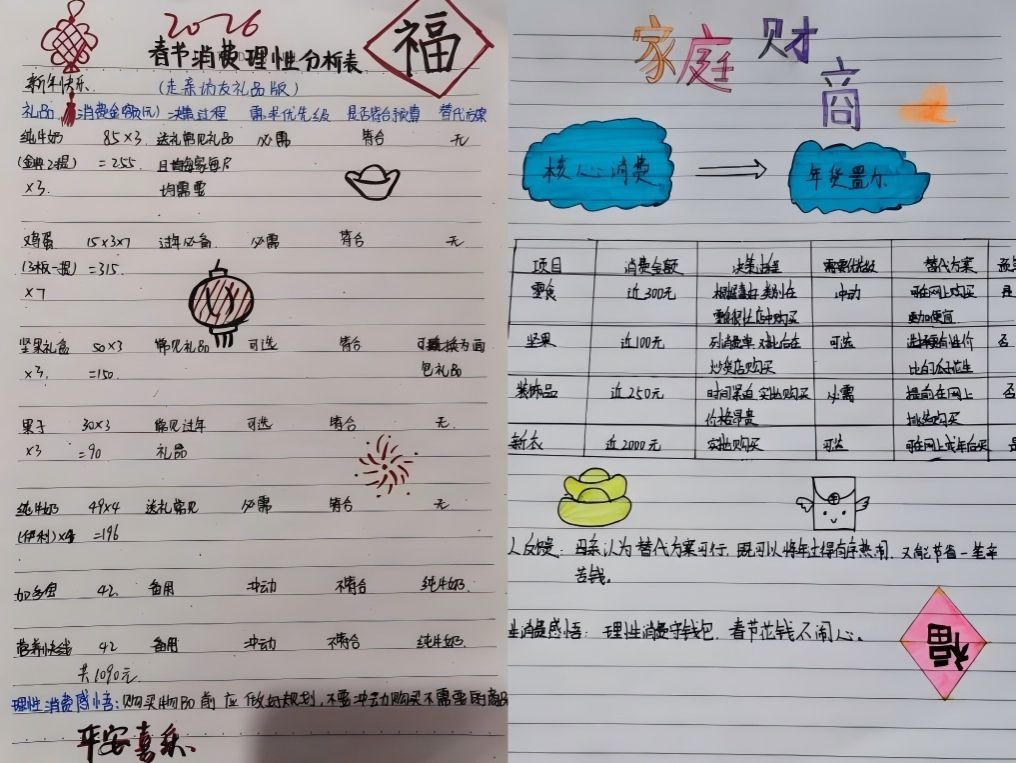 2026
春节消费理性分析表
福
新年快乐
(走亲访友礼品版)
礼品 消费金额(元) 决策过程 需求优先级 是否符合预算 替代方案
纯牛奶 85×3 送礼常见礼品 必需 符合 无
(金典2提) =255 且
×3 均需要
鸡蛋 15×3×7 过年必备 必需 符合 无
(3板一提) =315
×7
坚果礼盒 50×3 常见礼品 可选 符合 可换为面
×3 =150 包礼品
果子 30×3 常见过年 可选 符合 无
×3 =90 礼品
纯牛奶 49×4 送礼常见 必需 符合 无
(伊利)×4 =196
加多宝 42 备用 冲动 不符合 纯牛奶
营养快线 42 备用 冲动 不符合 纯牛奶
共1090元
理性消费感悟:购买物品前应做好规划,不要冲动购买不需要的商品
平安喜乐
家庭财商
核心消费
年货置办
项目 消费金额 决策过程 需要优先级 替代方案
零食 近300元 根据喜好类别在 冲动 可在网上购买 是
零食很忙店中购买 更加便宜
坚果 近100元 列消费单对比后在 可选 性价 否
炒货店购买 比的瓜子花生
装饰品 近250元 时间紧迫实地购买 必需 提前在网上 否
价格昂贵 挑选购买
新衣 近2000元 实地购买 可选 可在网上或年后买 是
人反馈:母亲认为替代方案可行,既可以将年过得有序热闹,又能节省一笔辛
苦钱。
性消费感悟:理性消费守钱包,春节花钱不闹心。
福